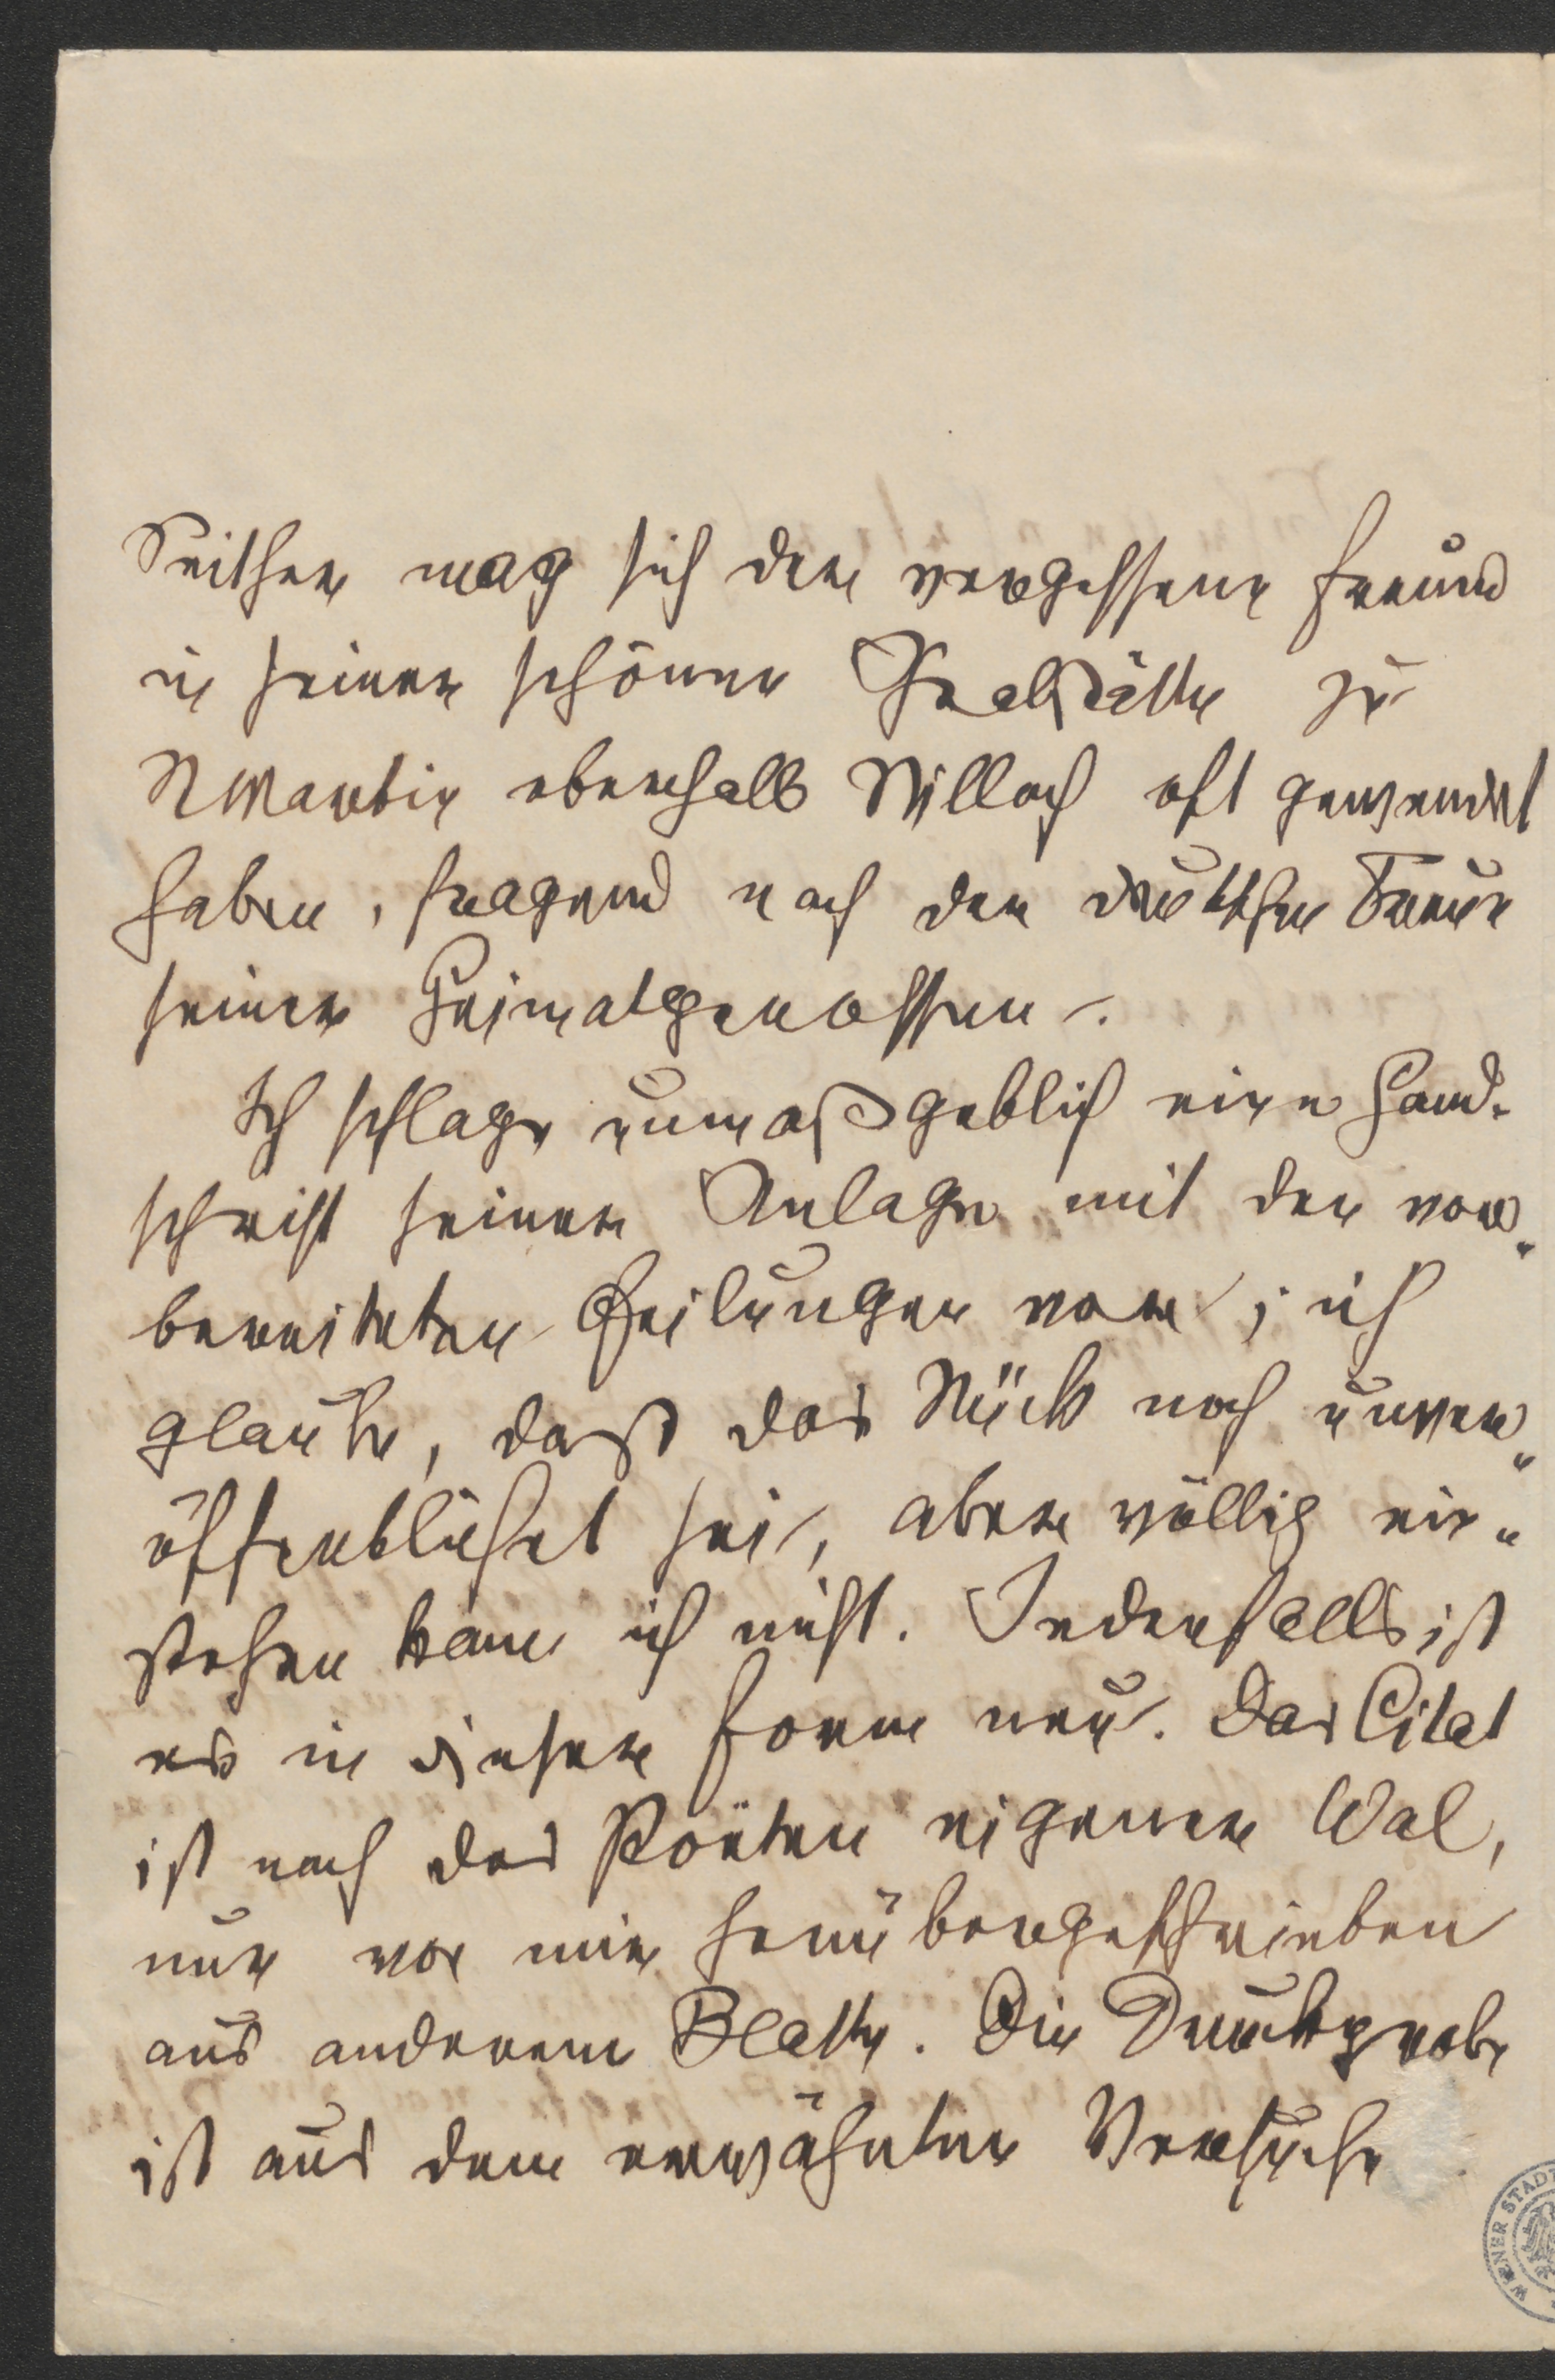 Seither mag sich der vergessene Freund
in seiner schönen Grabstätte zu
St Martin oberhalb Villach oft gewendet
haben, fragend nach der deutschen Treue
seiner Heimatgenossen.
Ich schlage unmaßgeblich eine Hand-
schrift seiner Anlage mit den vor-
bereiteten Theilungen vor; ich
glaube, daß das Stück noch unver-
öffentlichet sei, aber völlig ein-
stehen kann ich nicht. Jedenfalls ist
es in dieser Form neu. Das Citat
ist nach des Poëten eigener Wal,
nur von mir herübergeschrieben
aus anderem Blatte. Die Druckprobe
ist aus dem erwähnten Versuche
WIENER STADT